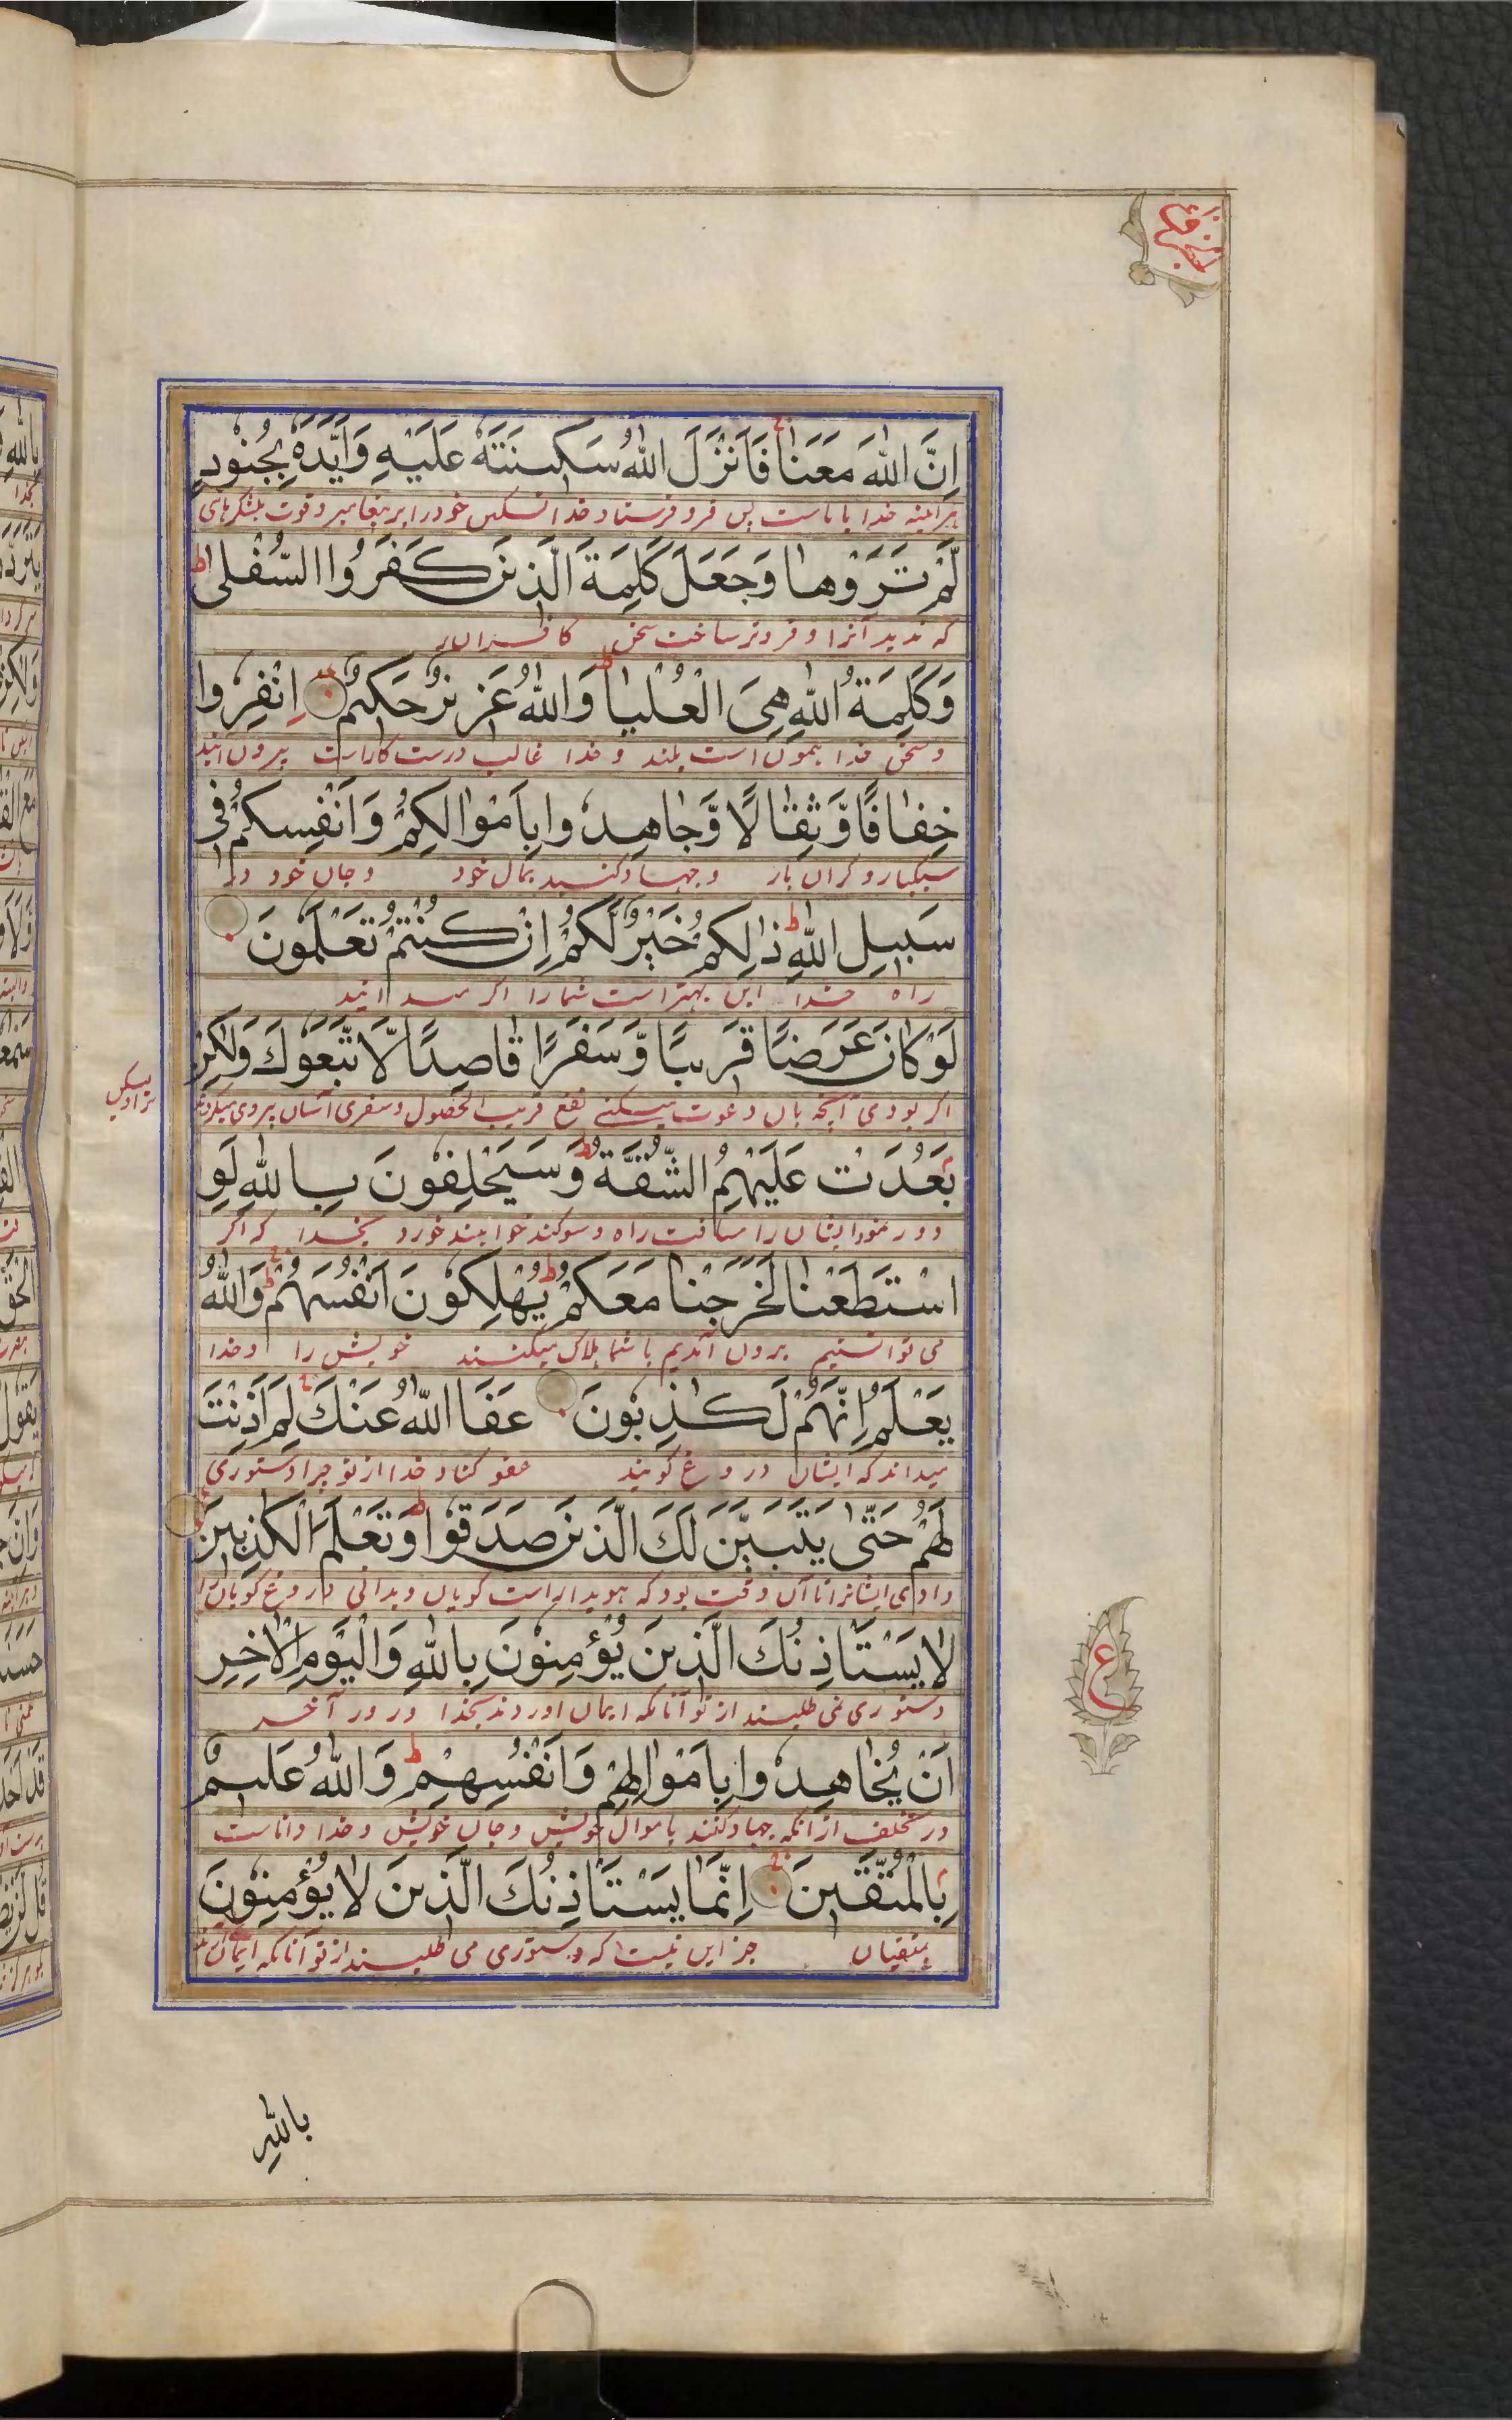 اِنَّ اللّٰهَ مَعَنَا فَاَنْزَلَ اللّٰهُ سَكِينَتَهٗ عَلَيْهِ وَاَيَّدَهٗ بِجُنُودٍ
هرآئینه خدا با ماست پس فرو فرستاد خدا تسکین خود را بر پیغامبر و قوت بلشکرهای
لَّمْ تَرَوْهَا وَجَعَلَ كَلِمَةَ الَّذِينَ كَفَرُوا السُّفْلٰى
که ندیدید آنرا و فروتر ساخت سخن کافران
وَكَلِمَةُ اللّٰهِ هِيَ الْعُلْيَا وَاللّٰهُ عَزِيزٌ حَكِيمٌ اِنْفِرُوا
و سخن خدا همون است بلند و خدا غالب درست کار است بیرون آئید
خِفَافًا وَّثِقَالًا وَّجَاهِدُوا بِاَمْوَالِكُمْ وَاَنْفُسِكُمْ فِي
سبکبار و گران بار و جهاد کنید بمال خود و جان خود در
سَبِيلِ اللّٰهِ ذٰلِكُمْ خَيْرٌ لَّكُمْ اِنْ كُنْتُمْ تَعْلَمُونَ
راه خدا این بهتر است شما را اگر میدانید
لَوْ كَانَ عَرَضًا قَرِيبًا وَّسَفَرًا قَاصِدًا لَّاتَّبَعُوكَ وَلٰكِنْ
اگر بودی آنچه بآن دعوت میکنی نفع قریب الحصول و سفری آسان پیروی میکردند
بَعُدَتْ عَلَيْهِمُ الشُّقَّةُ وَسَيَحْلِفُونَ بِاللّٰهِ لَوِ
دور نمود ایشان را مسافت راه و سوگند خواهند خورد بخدا که اگر
اسْتَطَعْنَا لَخَرَجْنَا مَعَكُمْ يُهْلِكُونَ اَنْفُسَهُمْ وَاللّٰهُ
می توانستیم بیرون آمدیم با شما هلاک میکنند خویش را و خدا
يَعْلَمُ اِنَّهُمْ لَكٰذِبُونَ عَفَا اللّٰهُ عَنْكَ لِمَ اَذِنْتَ
میداند که ایشان دروغ گویند عفو کناد خدا از تو چرا دستوری
لَهُمْ حَتّٰى يَتَبَيَّنَ لَكَ الَّذِينَ صَدَقُوا وَتَعْلَمَ الْكٰذِبِينَ
دادی ایشانرا تا آن وقت بود که هویدا راست گویان و بدانی دروغ گویان
لَا يَسْتَاْذِنُكَ الَّذِينَ يُؤْمِنُونَ بِاللّٰهِ وَالْيَوْمِ الْاٰخِرِ
دستوری نمی طلبند از تو آنانکه ایمان آوردند بخدا و روز آخر
اَنْ يُجَاهِدُوا بِاَمْوَالِهِمْ وَاَنْفُسِهِمْ وَاللّٰهُ عَلِيمٌ
در تخلف از آنکه جهاد کنند باموال خویش و جان خویش و خدا داناست
بِالْمُتَّقِينَ اِنَّمَا يَسْتَاْذِنُكَ الَّذِينَ لَا يُؤْمِنُونَ
بمتقیان جز این نیست که دستوری می طلبند از تو آنانکه ایمان
ع
بالله